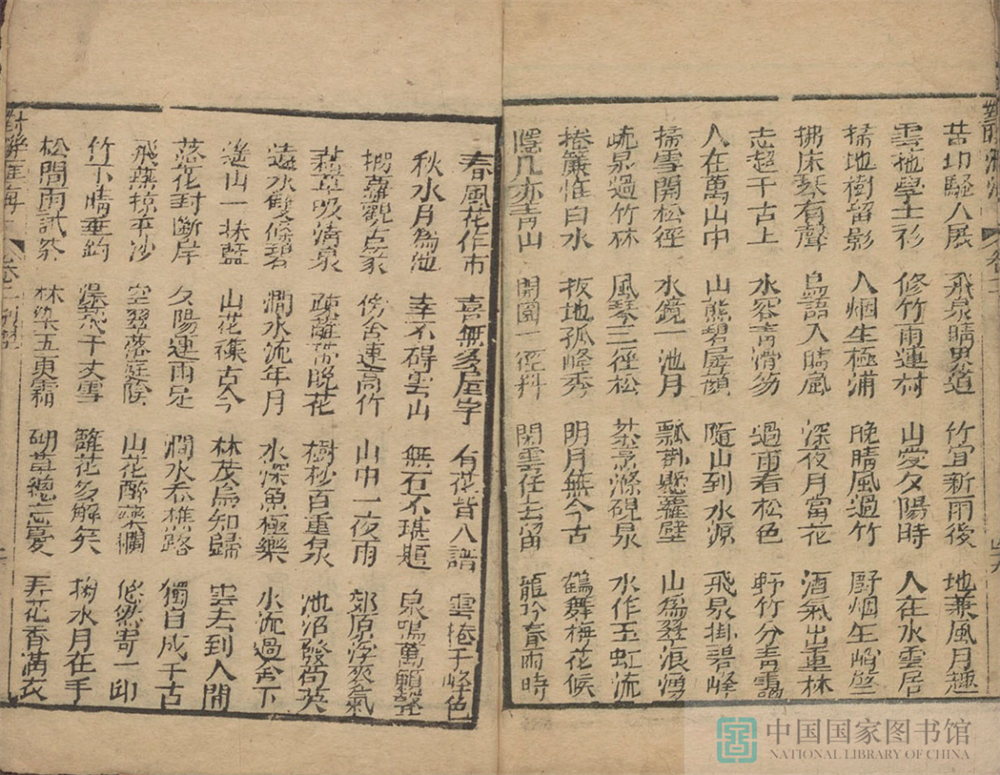 騷人 飛泉晴 道 竹宜新雨後 地兼風月趣
雲拖學士衫 修竹雨連村 山愛夕陽時 人在水雲居
掃地樹留影 人烟生極浦 晚晴風過竹 厨烟生峭壁
拂床琴有聲 鳥語入晴風 深夜月當花 酒氣出重林
志超千古上 水容青滑笏 過雨看松色 野竹分青靄
人在萬山中 山熊碧孱顔 隨山到水源 飛泉掛碧峰
掃雪開松徑 水鏡一池月 瓢 懸蘿壁 山為翠浪湧
疏泉過竹林 風琴三徑松 茶烹滌硯泉 水作玉虹流
捲簾惟白水 拔地孤峰秀 明月無今古 鶴舞梅花候
隱几亦青山 開園一徑斜 閑雲任去留 龍吟春雨時
春風花作市 喜無多屋宇 有花皆入譜 雲捲千峰色
秋水月為池 幸不碍雲山 無石不堪題 泉鳴萬籟聲
觀古篆 傍舍連高竹 山中一夜雨 郊原浮爽氣
藉草吸清泉 疎籬帶晚花 樹杪百重泉 池沼發荷英
遠水雙條碧 澗水流年月 水深魚極樂 水流過舍下
遙山一抹藍 山花穠古今 林茂鳥知歸 雲去到人間
落花封斷岸 夕陽連雨足 澗水吞樵路 獨自成千古
飛燕掠平沙 空翠落庭陰 山花醉藥欄 悠然寄一邱
竹下晴垂釣 瀑飛千丈雪 花多解矣 掬水月在手
松間雨試茶 林染五更霜 砌草總忘憂 弄花香滿衣
中国国家图书馆
NATIONAL LIBRARY OF CHINA